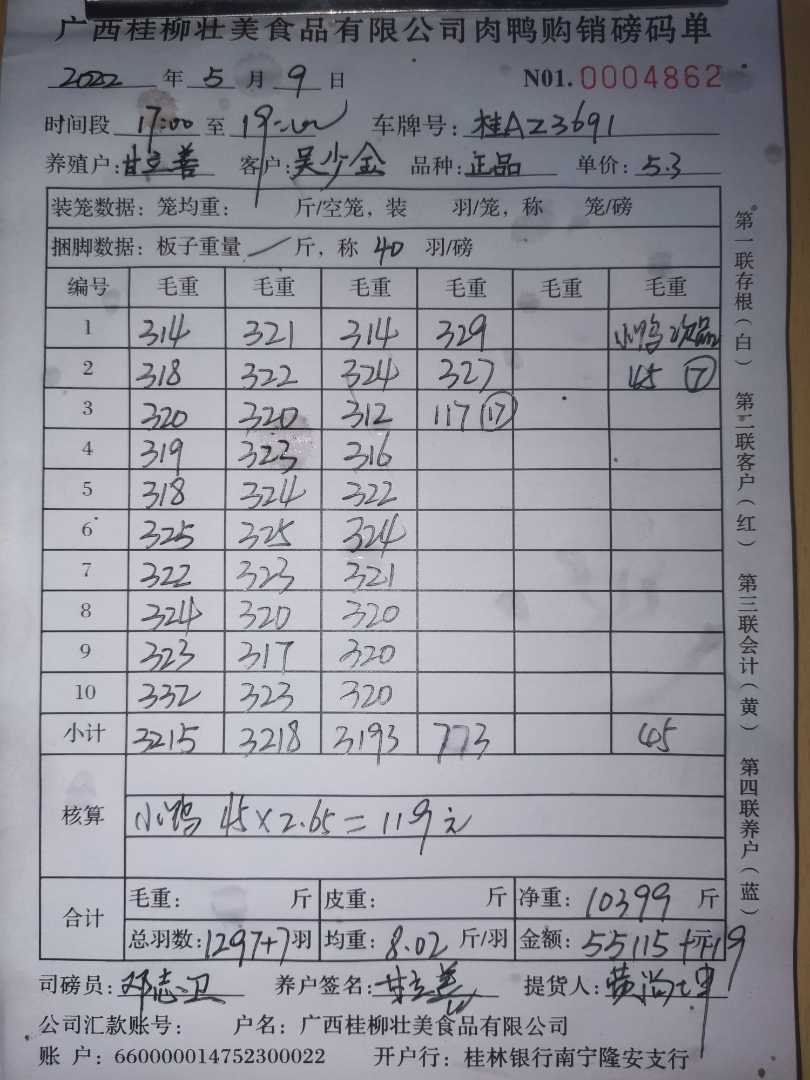 广西桂柳壮美食品有限公司肉鸭购销磅码单
2022 年 5 月 9 日 N01. 0004862
时间段 17:00 至 19 车牌号: 桂AZ3691
养殖户: 甘立善 客户: 吴少金 品种: 正品 单价: 5.3
装笼数据: 笼均重: 斤/空笼, 装 羽/笼, 称 笼/磅
捆脚数据: 板子重量 / 斤, 称 40 羽/磅
编号 毛重 毛重 毛重 毛重 毛重 毛重
1 314 321 314 329 小鸭次品
2 318 322 324 327 45 ⑦
3 320 320 312 117 ⑰
4 319 323 316
5 318 324 322
6 325 325 324
7 322 323 321
8 324 320 320
9 323 317 320
10 332 323 320
小计 3215 3218 3193 773 45
核算
小鸭 45×2.65=119元
合计
毛重: 斤 皮重: 斤 净重: 10399 斤
总羽数: 1297+7 羽 均重: 8.02 斤/羽 金额: 55115+119 元
司磅员: 邓志卫 养户签名: 甘立善 提货人:
公司汇款账号: 户名: 广西桂柳壮美食品有限公司
账 户: 660000014752300022 开户行: 桂林银行南宁隆安支行
第一联存根(白) 第二联客户(红) 第三联会计(黄) 第四联养户(蓝)